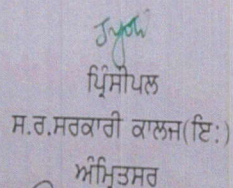 Jyoti
ਪ੍ਰਿੰਸੀਪਲ
ਸ.ਰ.ਸਰਕਾਰੀ ਕਾਲਜ(ਇ:)
ਅੰਮ੍ਰਿਤਸਰ